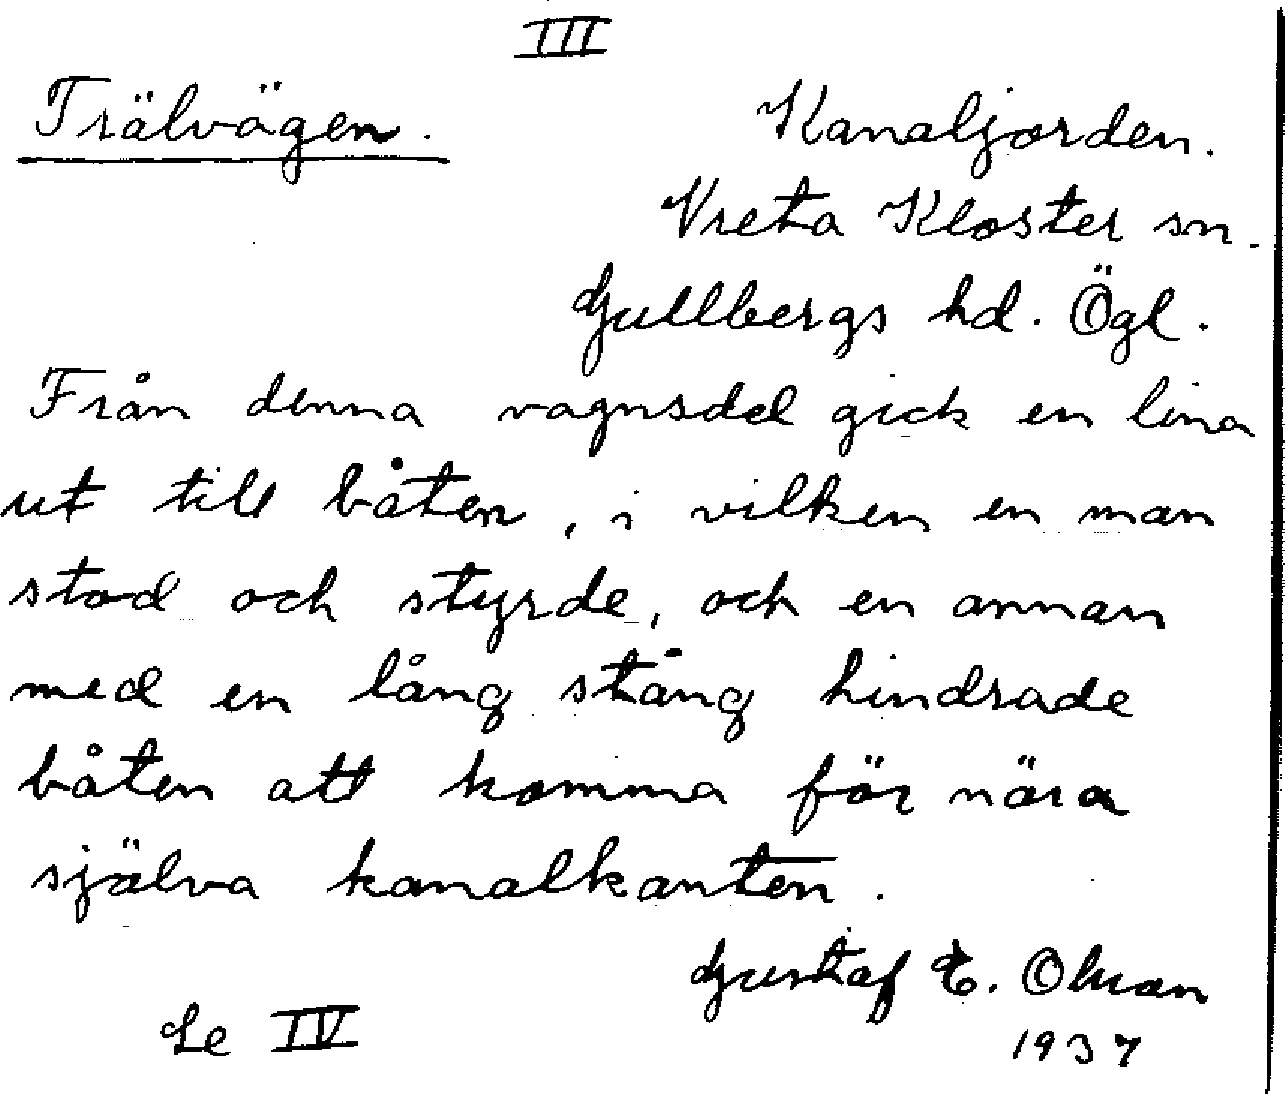 III
Trälvägen. Kanaljorden.
Vreta Kloster sn.
Gullbergs hd. Ögl.
Från denna vagnsdel gick en lina
ut till båten, i vilken en man
stod och styrde, och en annan
med en lång stång hindrade
båten att komma för nära
själva kanalkanten.
Gustaf E. Olsson
Se IV 1937